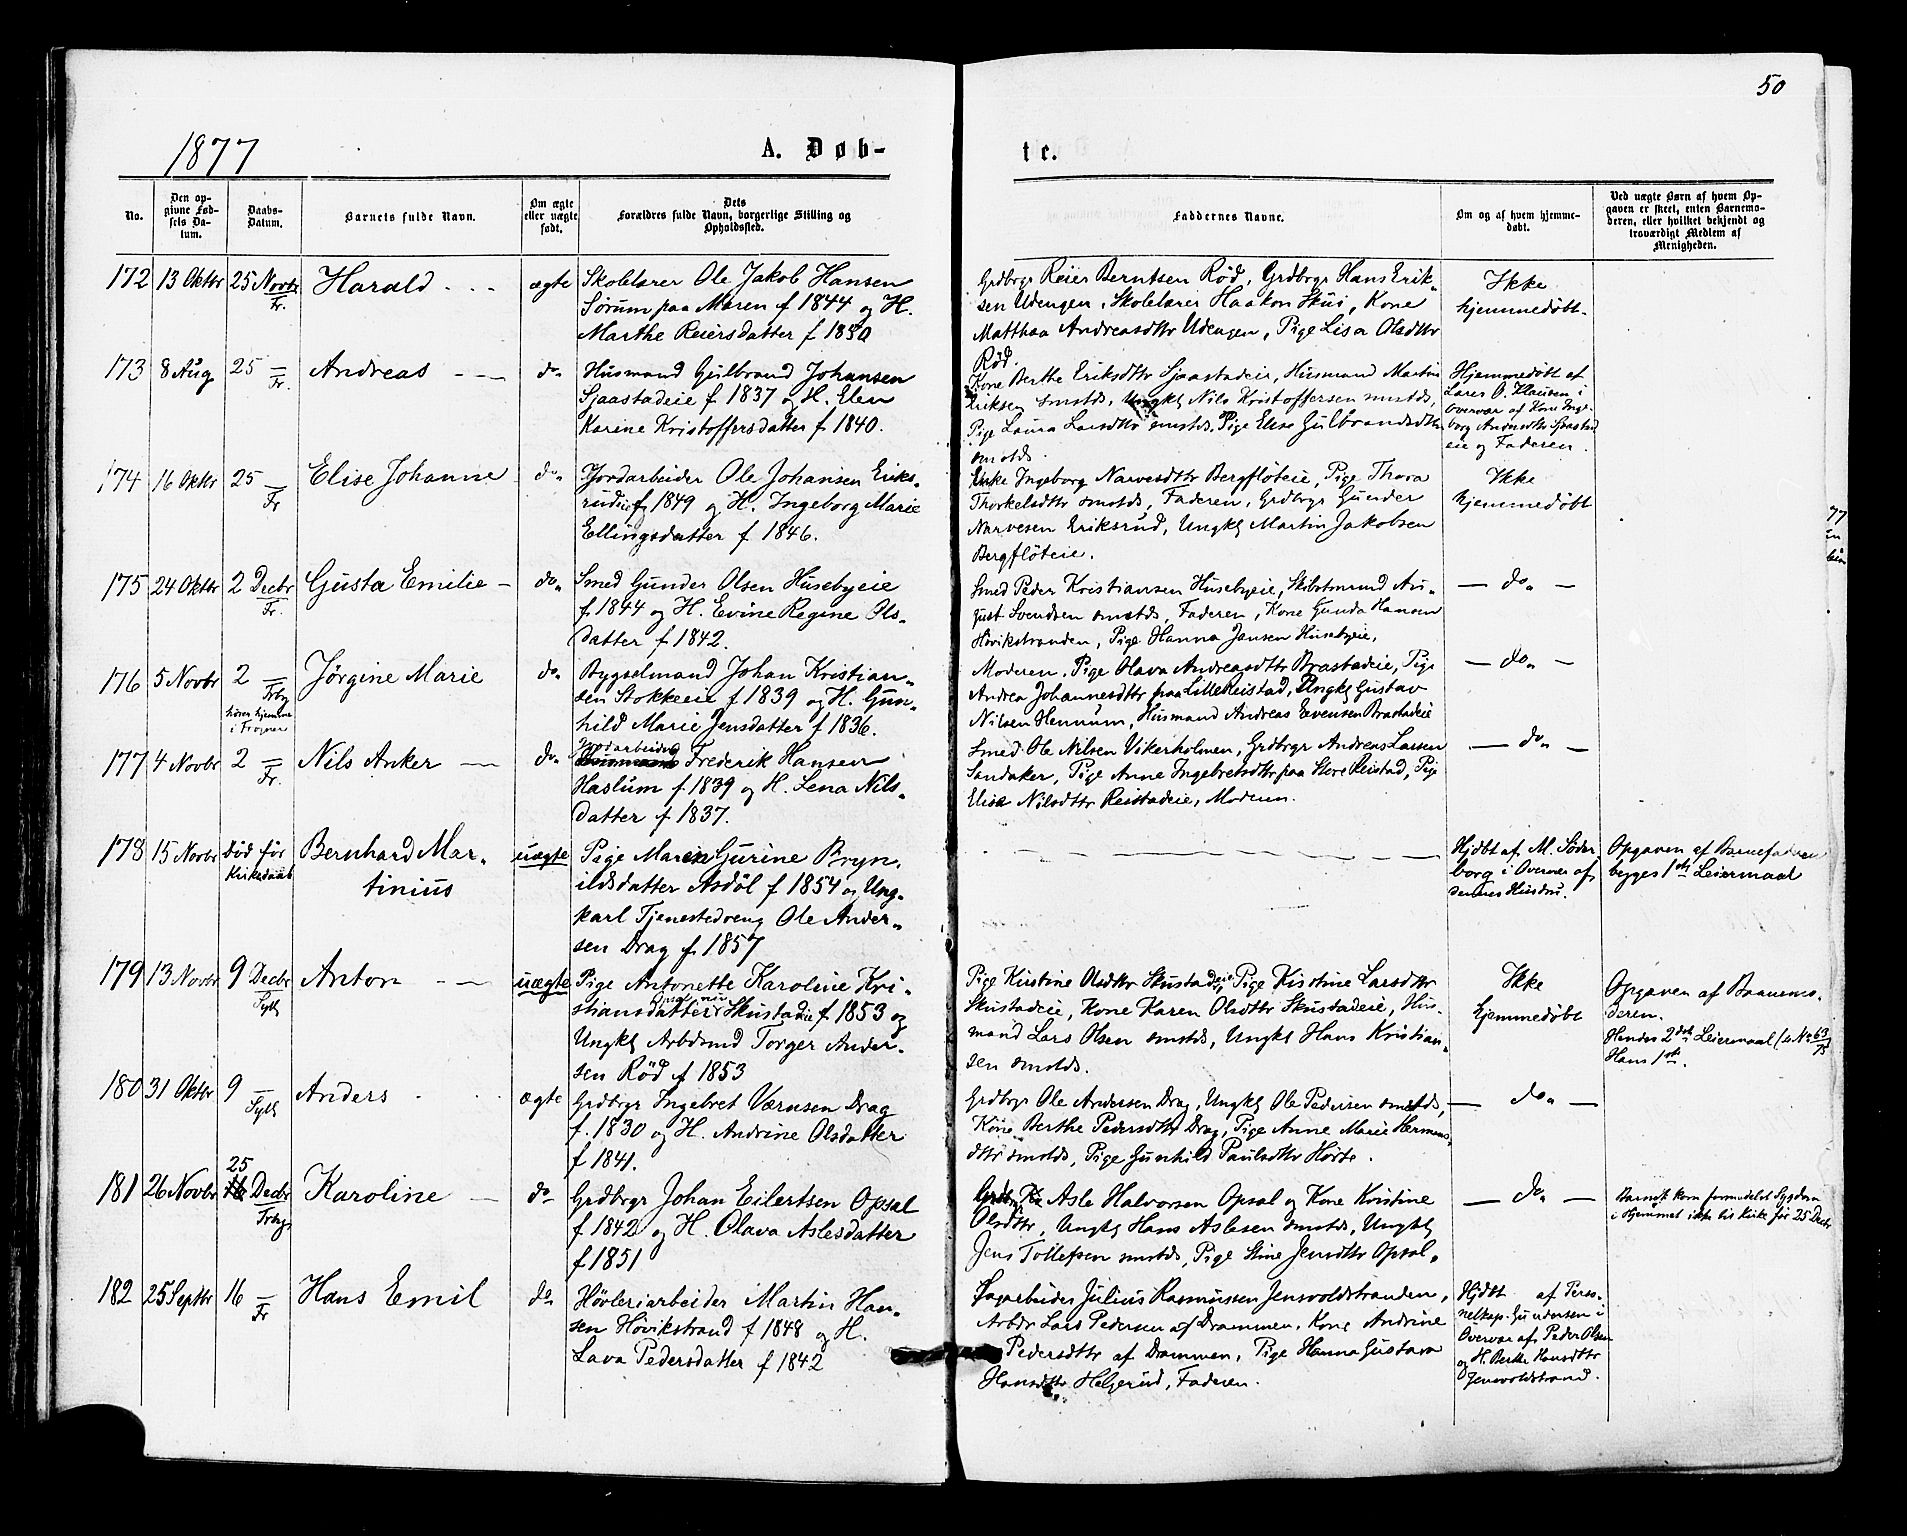 50
1877
A. Døb-
te.
No.
Den op-
givne Fød-
sels Da-
tum.
Daabs-
Datum.
Barnets fulde Navn.
Om ægte
eller uægte
født.
Dets
Forældres fulde Navn, borgerlige Stilling og
Opholdssted.
Faddernes Navne.
Om og af hvem hjemme-
døbt.
Ved uægte Børn af hvem Op-
gaven er skeet, enten Barnemo-
deren, eller hvilket bekjendt og
troværdigt Medlem af
Menigheden.
172 13 Oktbr 25 Novbr Fr. Harald ægte
Skolelærer Ole Jakob Hansen
Sørum paa Maren f 1844 og H.
Marthe Reiersdatter f 1850
Grdbrgr Reier Berntsen Rød, Grdbrgr Hans Erik-
sen Udengen, Skolelærer Haakon Skui, Kone
Matthea Andreasdttr Udengen, Pige Lisa Olsdttr
Rød.
Ikke
hjemmedøbt.
173 8 Aug 25 — Fr. Andreas — do
Husmand Gulbrand Johansen
Sjaastadeie f. 1837 og H. Elen
Karine Kristoffersdatter f. 1840.
Kone Berthe Eriksdttr Sjaastadeie, Husmand Martin
Eriksen smstds, Ungkl Nils Kristoffersen smstds,
Pige Laura Larsdttr smstds, Pige Elise Gulbrandsdttr
smstds.
Hjemmedøbt af
Lars O. Klausen i
Overvær af Kone Inge-
borg Andersdttr Sjaastad
eie og Faderen.
174 16 Oktbr 25 — Fr Elise Johanne do
Jordarbeider Ole Johansen Eriks-
rudeie f 1849 og H. Ingeborg Marie
Ellingsdatter f 1846.
Enke Ingeborg Narvesdttr Bergfløteie, Pige Thora
Thorkelsdttr smstds, Faderen, Grdbrgr Gunder
Narvesen Eriksrud, Ungkl Martin Jakobsen
Bergfløteie.
Ikke
hjemmedøbt
175 24 Oktbr 2 Decbr Fr. Gusta Emilie — do
Smed Gunder Olsen Husebyeie
f. 1844 og H. Evine Regine Ols-
datter f 1842.
Smed Peder Kristiansen Husebyeie, Skibstmrmd Au-
gust Svendsen smstds, Faderen, Kone Gunda Hansen
Hövikstranden, Pige Hanna Jansen Husebyeie,
— do —
176 5 Novbr 2 — Frbg
hører hjemme
i Frogner
Jørgine Marie do
Bygselmand Johan Kristian-
sen Stokkeeie f 1839 og H. Gun-
hild Marie Jensdatter f 1836.
Moderen, Pige Olava Andreasdttr Brastadeie, Pige
Andrea Johannesdttr paa Lille Reistad, Ungkl Gustav
Nilsen Hennum, Husmand Andreas Evensen Brastadeie
— do —
177 4 Novbr 2 — Fr. Nils Anker — do
Jordarbeider
Husmand Frederik Hansen
Haslum f. 1839 og H. Lena Nils-
datter f 1837.
Smed Ole Nilsen Vikerholmen, Grdbrgr Andreas Larsen
Sandaker, Pige Anne Ingebretsdttr paa Store Reistad, Pige
Elise Nilsdttr Reistadeie, Moderen.
— do —
178 15 Novbr død før
Kirkedaab
Bernhard Mar-
tinius
uægte
Pige Maren Gurine Bryn-
ildsdatter Asdöl f 1854 og Ung-
karl Tjenestedreng Ole Ander-
sen Drag f. 1857
Hjdbt af M. Söder
borg i Overvær af
dennes Hustru.
Opgaven af Barnefaderen
begges 1ste Leiermaal
179 13 Novbr 9 Decbr Sylg Anton — uægte
Pige Antonette Karoline Kri-
stiansdatter Skustadeie f. 1853 og
Ungkl Arbdmd Torger Ander-
sen Rød f 1853
Pige Kristine Olsdttr Skustadeie, Pige Kristine Larsdttr
Skustadeie, Kone Karen Olsdttr Skustadeie, Hus-
mand Lars Olsen smstds, Ungkl Hans Kristian-
sen smstds.
Ikke
hjemmedøbt
Opgaven af Barnemo-
deren.
Hendes 2det Leiermaal (s. No 63/75
Hans 1ste.
180 31 Oktbr 9 — Sylg Anders ægte
Grdbrgr Ingebret Værnsen Drag
f. 1830 og H. Andrine Olsdatter
f 1841.
Grdbrgr Ole Andersen Drag, Ungkl Ole Pedersen smstds,
Kone Berthe Pedersdttr Drag, Pige Anne Marie Hermans-
dttr smstds, Pige Gunhild Paulsdttr Hørte.
— do —
181 26 Novbr 25
16 Decbr Frbg Karoline — do
Grdbrgr Johan Eilertsen Opsal
f 1842 og H. Olava Aslesdatter
f 1851
Grdbrgr Asle Halvorsen Opsal og Kone Kristine
Olsdttr, Ungkl Hans Aslesen smstds, Ungkl
Jens Tollefsen smstds, Pige Stine Jensdttr Opsal.
— do —
Barnet kom formedelst Sygdom
i Hjemmet ikke til Kirke før 25 Decbr
182 25 Septbr 16 — Fr Hans Emil do
Høvleriarbeider Martin Han-
sen Hövikstrand f 1848 og H.
Lava Pedersdatter f 1842
Sagarbeider Julius Rasmussen Jensvoldstranden,
Arbdr Lars Pedersen af Drammen, Kone Andrine
Pedersdttr af Drammen, Pige Hanna Gustava
Hansdttr Helgerud, Faderen.
Hjdbt af Pers-
nelkap. Gundersen i
Overvær af Peder Olsen
og H. Berthe Hansdttr
Jensvoldstrand.